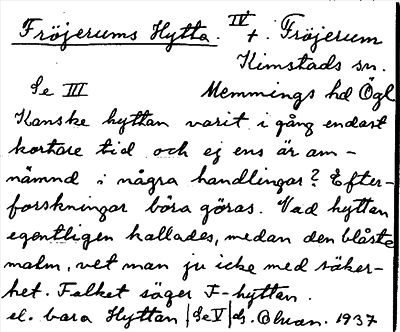 Fröjerums Hytta. IV t. Fröjerum
Kimstads sn.
Se III Memmings hd Ögl
Kanske hyttan varit i gång endast
kortare tid och ej ens är am-
nämnd i några handlingar? Efter-
forskningar böra göras. Vad hyttan
egentligen kallades, medan den blåste
malm, vet man ju icke med säker-
het. Folket säger F-hyttan.
el. bara Hyttan | Se V | 1937